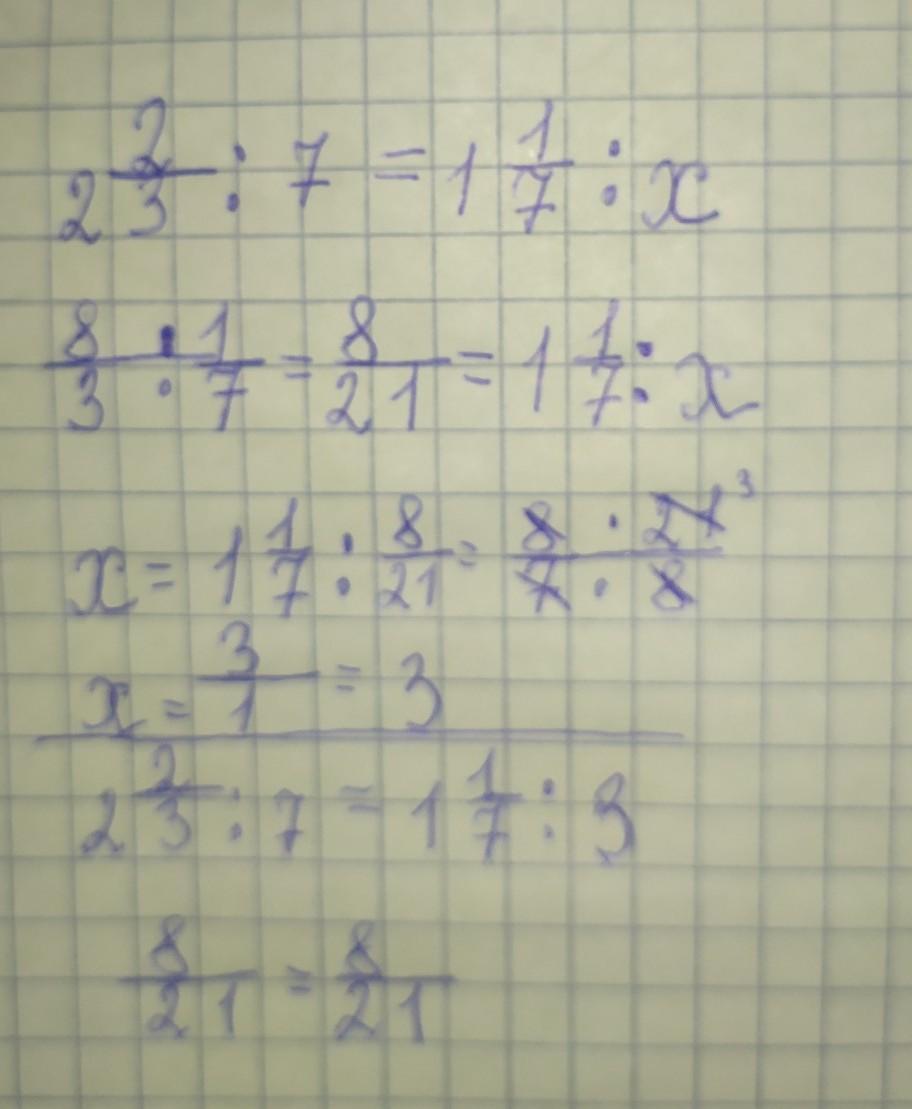 2 2/3 : 7 = 1 1/7 : x
8/3 : 1/7 = 8/21 = 1 1/7 : x
x = 1 1/7 : 8/21 = 8 · 21 3 / 7 · 8
x = 3/1 = 3
2 2/3 : 7 = 1 1/7 : 3
8/21 = 8/21